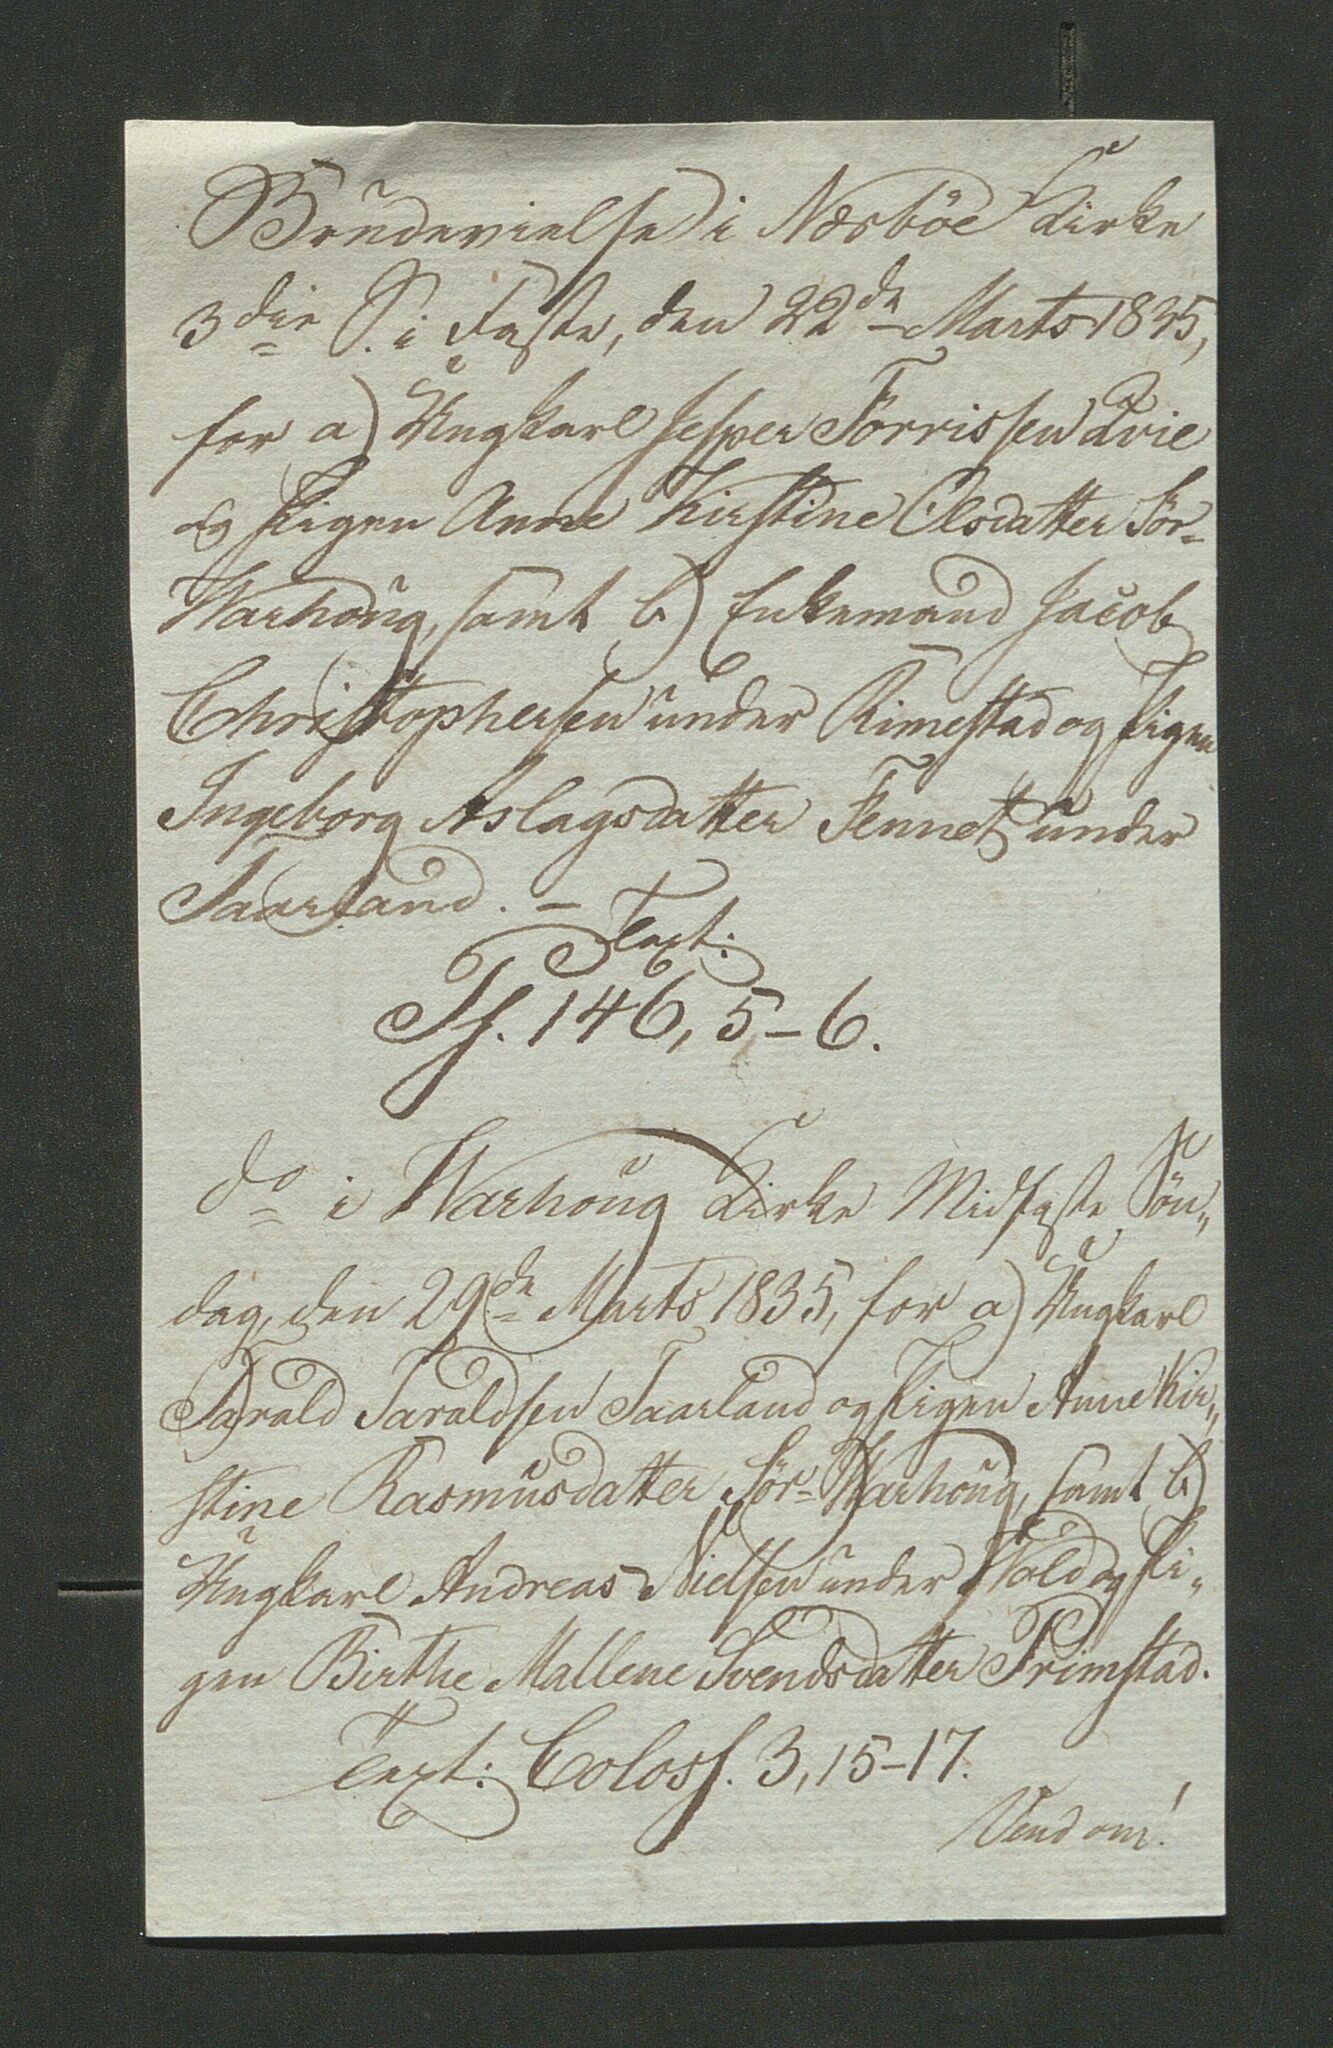 Brudevielse i Næsböe Kirke
3die S. i Faste, den 22de Marts 1835,
for a) Ungkarl Jesper Törrissen Qvie
og Pigen Anne Kirstine Olsdatter Sör-
Warhoug, samt b) Enkemand Jacob
Christophersen under Rimestad og Pigen
Ingeborg Aslagsdatter Tennet under
Taarland. –
Text:
Ps. 146, 5–6.
do i Warhoug Kirke Midfaste Sön-
dag, den 29de Marts 1835, for a) Ungkarl
Tarald Taraldsen Taarland og Pigen Anne Kir-
stine Rasmusdatter Sör-Warhoug, samt b)
Ungkarl Andreas Nielsen under Wold og Pi-
gen Birthe Mallene Svendsdatter Primstad.
Text: Coloss. 3, 15–17.
Vend om!